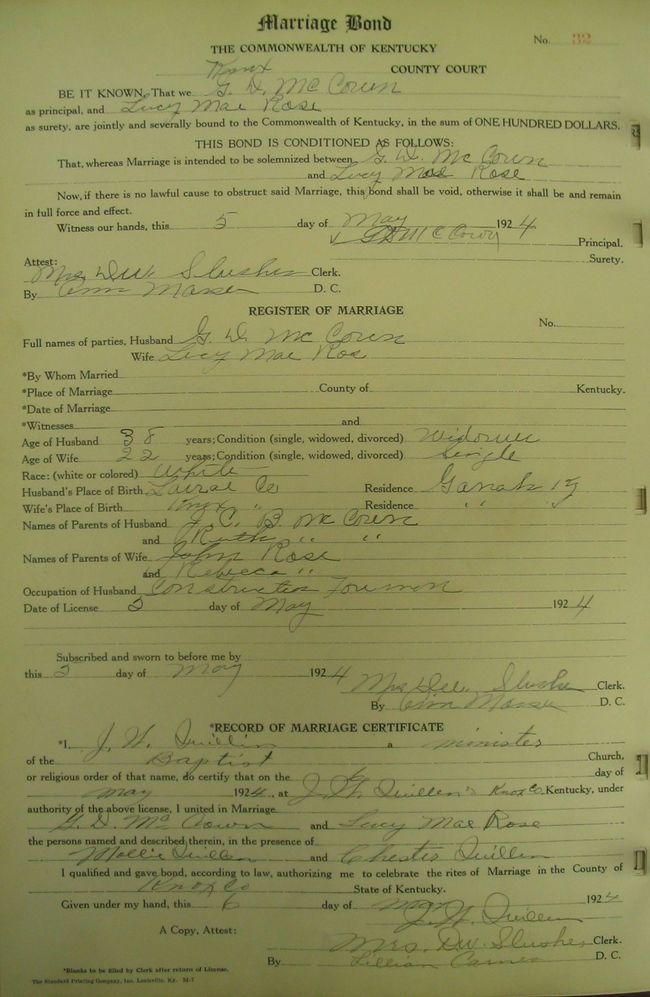 Marriage Bond
No. 32
THE COMMONWEALTH OF KENTUCKY
Knox COUNTY COURT
BE IT KNOWN, That we G. D. McCown
as principal, and Lucy Mae Rose
as surety, are jointly and severally bound to the Commonwealth of Kentucky, in the sum of ONE HUNDRED DOLLARS.
THIS BOND IS CONDITIONED AS FOLLOWS:
That, whereas Marriage is intended to be solemnized between G. D. McCown
and Lucy Mae Rose
Now, if there is no lawful cause to obstruct said Marriage, this bond shall be void, otherwise it shall be and remain
in full force and effect.
Witness our hands, this 5 day of May 1924
G D McCown Principal.
Surety.
Attest:
Mrs. D W Slusher Clerk.
By D. C.
REGISTER OF MARRIAGE
No.
Full names of parties, Husband G. D. McCown
Wife Lucy Mae Rose
*By Whom Married
*Place of Marriage County of Kentucky.
*Date of Marriage
*Witnesses and
Age of Husband 38 years; Condition (single, widowed, divorced) Widower
Age of Wife 22 years; Condition (single, widowed, divorced) Single
Race: (white or colored) White
Husband's Place of Birth Laurel Co Residence Ky
Wife's Place of Birth Knox " Residence " "
Names of Parents of Husband J. C. B. McCown
and Ruth " "
Names of Parents of Wife John Rose
and Rebecca "
Occupation of Husband Construction Foreman
Date of License 5 day of May 1924
Subscribed and sworn to before me by
this 5 day of May 1924
Mrs D W Slusher Clerk.
By D. C.
*RECORD OF MARRIAGE CERTIFICATE
*I, J. W. Quillen a minister
of the Baptist Church,
or religious order of that name, do certify that on the day of
May 1924, at J. W. Quillen's Knox Co. Kentucky, under
authority of the above license, I united in Marriage
G. D. McCown and Lucy Mae Rose
the persons named and described therein, in the presence of
Mollie Quillen and Chester Quillen
I qualified and gave bond, according to law, authorizing me to celebrate the rites of Marriage in the County of
Knox Co State of Kentucky.
Given under my hand, this 6 day of May 1924
J. W. Quillen
A Copy, Attest:
Mrs. D W Slusher Clerk.
By Lillian D. C.
*Blanks to be filled by Clerk after return of License.
The Standard Printing Company, Inc. Louisville, Ky. M-7